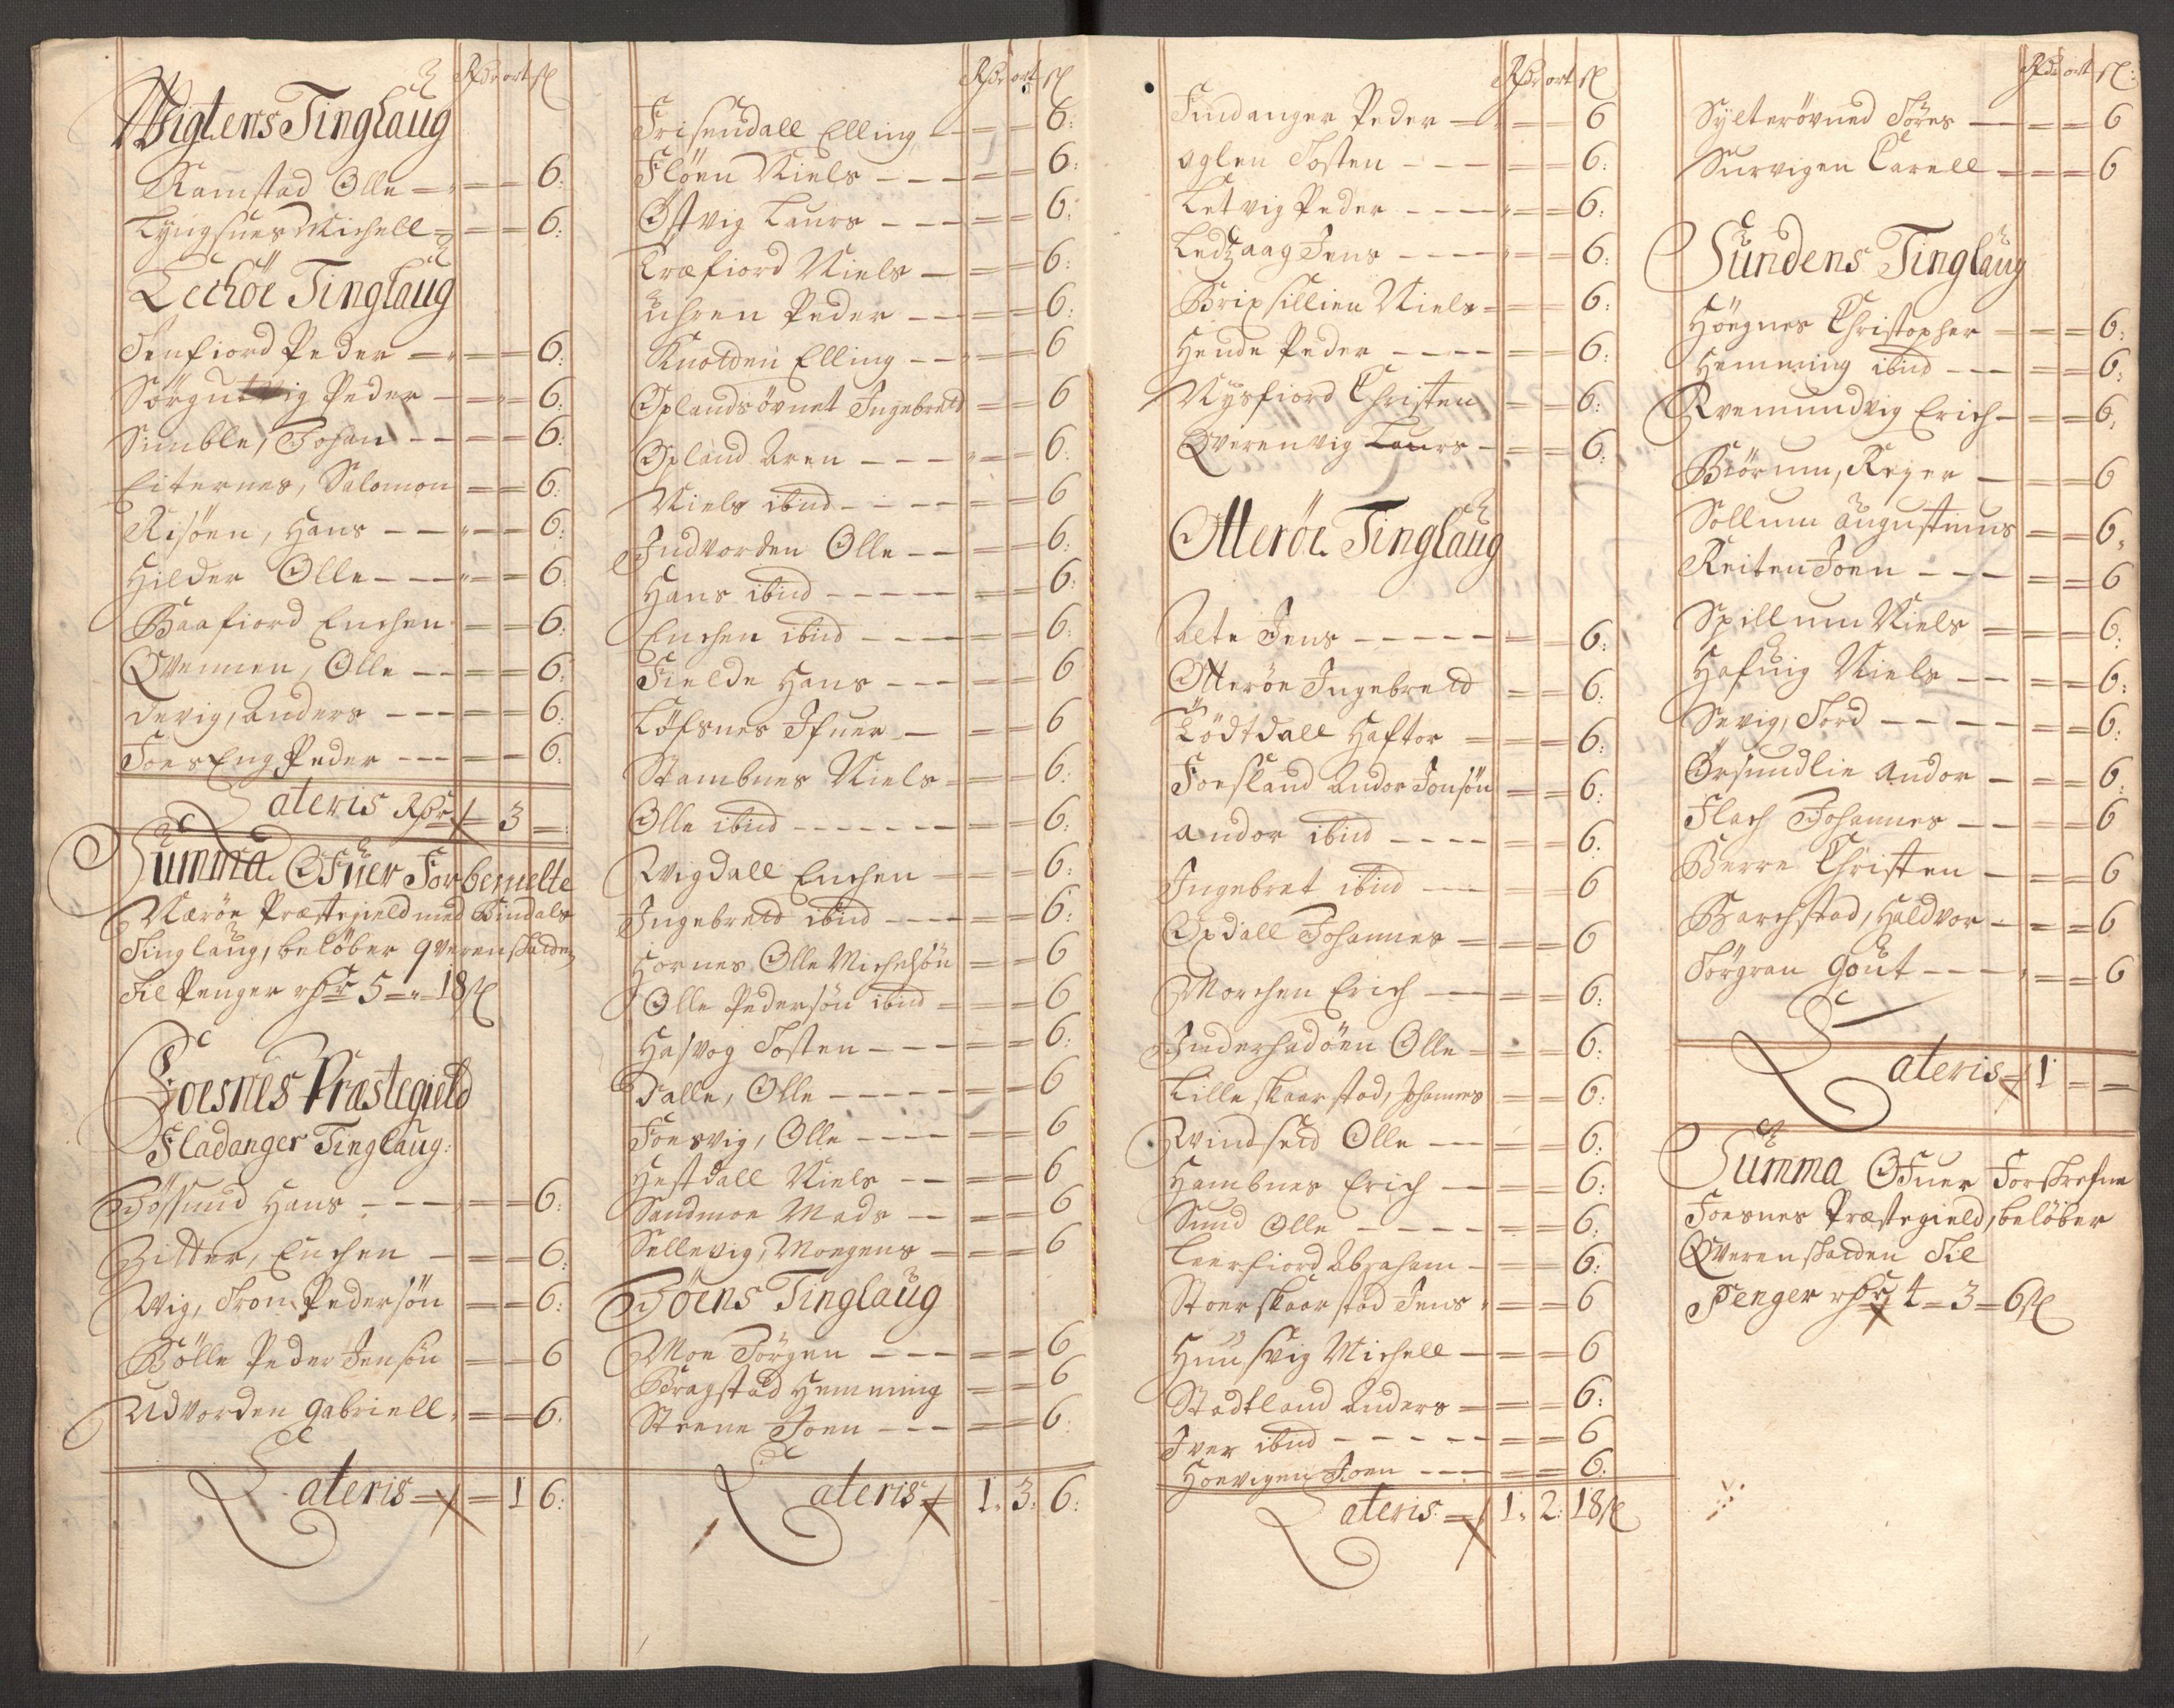 Rdr ort sl
Wigtens Tinglaug
Ramstad Olle — 6:
Lyngsnes Michell — 6:
Lechöe Tinglaug
Tenfiord Peder — 6:
Sörgutvig Peder — 6:
Simble, Johan — 6:
Eiternes, Salomon — 6:
Risöen, Hans — 6:
Hilder Olle — 6:
Baafiord Enchen — 6:
Qvennen, Olle — 6:
Devig, Anders — 6:
Foes Eng Peder — 6:
Lateris Rdr — 3 —
Summa Ofuer Forbemelte
Næröe Præstegield med Bindals
Tinglaug, beløber qverenskatten
til Penger rdr 5 — 18 sl
Foesnes Præstegield
Fladanger Tinglaug:
Bössund Hans — 6:
Zitter, Enchen — 6:
Wig, Tron Pedersön — 6:
Bölle Peder Jensön — 6
Udvorden Gabriell — 6:
Lateris — 1 6:
Rdr ort sl
Frisendall Elling — 6:
Flöen Niels — 6:
Östvig Laurs — 6:
Træfiord Niels — 6:
Uhren Peder — 6:
Knotten Elling — 6
Oplandsövnet Ingebret — 6
Opland Aren — 6:
Niels ibid — 6
Indvorden Olle — 6:
Hans ibid — 6:
Enchen ibid — 6:
Fielde Hans — 6
Löfsnes Ifuer — 6
Stambnes Niels — 6:
Olle ibid — 6:
Wigdall Enchen — 6:
Ingebret ibid — 6:
Hornes Olle Michelsön — 6
Olle Pedersön ibid — 6
Hasvog Tosten — 6:
Dalle, Olle — 6
Foesvig, Olle — 6
Hestdall Niels — 6
Sandmoe Mads — 6
Sellevig, Moegens — 6
Böens Tinglaug
Moe Jörgen — 6
Bragstad Hemming — 6
Steene Joen — 6:
Lateris — 1. 3. 6:
Rdr ort sl
Findanger Peder — 6
Oglen Tosten — 6:
Letvig Peder — 6:
Ledzaag Jens — 6:
Brixsillien Niels — 6:
Hende Peder — 6:
Nysfiord Christen — 6:
Qverenvig Laurs — 6:
Otteröe Tinglaug
Alte Jens — 6:
Otteröe Ingebret — 6:
Lödtdall Haftor — 6:
Foesland Andor Jonsön — 6:
Andor ibid — 6.
Ingebret ibid — 6
Opdall Johannes — 6
Morchen Erich — 6:
Inderhadöen Olle — 6:
Lille skaarstad, Johannes — 6:
Windseid Olle — 6:
Hambnes Erich — 6:
Sund Olle — 6:
Leerfiord Abraham — 6:
Stoerskaarstad Jens — 6
Huusvig Michell — 6
Stadtland Anders — 6:
Iver ibid — 6
Hoevigen Joen — 6.
Lateris — 1. 2. 18 sl
Rdr ort sl:
Sylterövned Töres — 6
Survigen Carell — 6
Sundens Tinglaug
Höegnes Christopher — 6:
Hemming ibid — 6:
Rvemundvig Erich — 6:
Biörum, Reyer — 6
Sollum Augustinus — 6.
Reiten Joen — 6
Spillum Niels — 6:
Hafuig Niels — 6:
Sevig, Tord — 6:
Örsundlie Andor — 6:
Flach Johannes — 6
Berre Christen — 6
Barchstad, Haldvor — 6
Törgran Gout — 6
Lateris — 1 —
Summa Ofuer Forskrefne
Foesnes Præstegield, beløber
Qverenskatten til
Penger rdr 4 — 3 — 6 sl